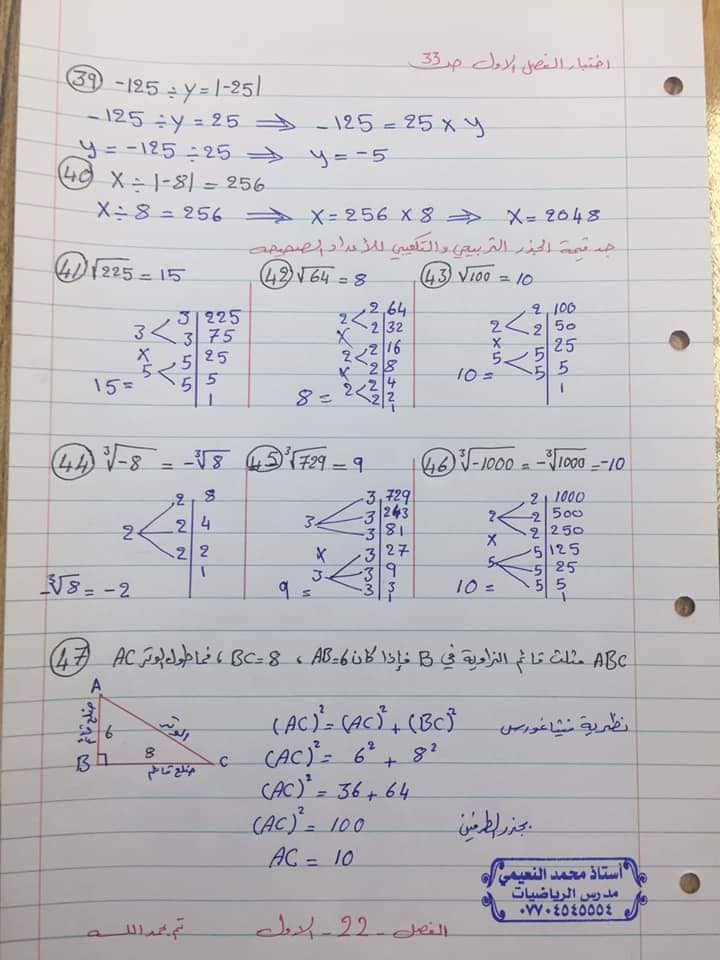 اختبار الفصل الاول صـ 33
39 -125 ÷ y = |-25|
-125 ÷ y = 25 ⟹ -125 = 25 × y
y = -125 ÷ 25 ⟹ y = -5
40 x ÷ |-8| = 256
x ÷ 8 = 256 ⟹ x = 256 × 8 ⟹ x = 2048
جد قيمة الجذر التربيعي والتكعيبي للأعداد الصحيحه
41 √225 = 15
3 | 225
3 | 75
5 | 25
5 | 5
1
3
×
5
15 =
42 √64 = 8
2 | 64
2 | 32
2 | 16
2 | 8
2 | 4
2 | 2
1
2
×
2
×
2
8 =
43 √100 = 10
2 | 100
2 | 50
5 | 25
5 | 5
1
2
×
5
10 =
44 ∛-8 = -∛8
2 | 8
2 | 4
2 | 2
1
2
-∛8 = -2
45 ∛729 = 9
3 | 729
3 | 243
3 | 81
3 | 27
3 | 9
3 | 3
1
3
×
3
9 =
46 ∛-1000 = -∛1000 = -10
2 | 1000
2 | 500
2 | 250
5 | 125
5 | 25
5 | 5
1
2
×
5
10 =
47 ABC مثلث قائم الزاوية في B فإذا كان AB=6 ، BC=8 ، فما طول الوتر AC
A
ضلع قائم
6
الوتر
B
8
C
ضلع قائم
نظرية فيثاغورس (AC)² = (AC)² + (BC)²
(AC)² = 6² + 8²
(AC)² = 36 + 64
(AC)² = 100 بجذر الطرفين
AC = 10
أستاذ محمد النعيمي
مدرس الرياضيات
٠٧٧٠٤٥٤٥٥٥٤
الفصل - 22 - الاول
تم بحمد الله